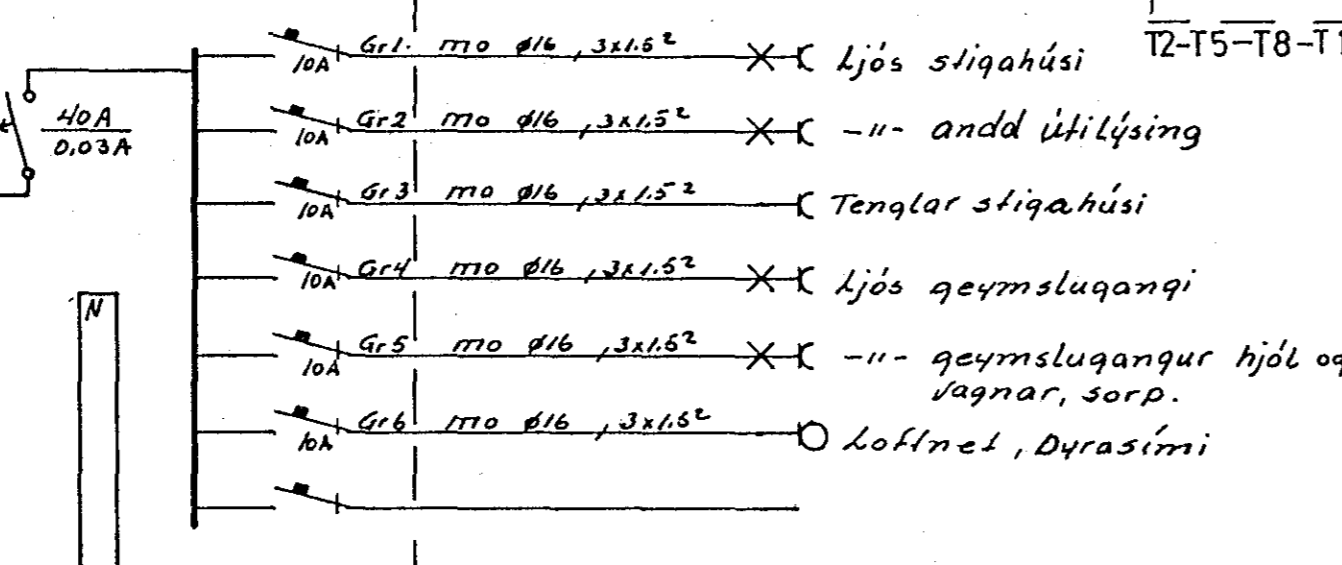 T2-T5-T8-T1
Gr1. mo ø16, 3x1.5² Ljós stigahúsi
10A
40A
0,03A
Gr2 mo ø16, 3x1.5² -"- andd útilýsing
10A
Gr3 mo ø16, 3x1.5² Tenglar stigahúsi
10A
Gr4 mo ø16, 3x1.5² Ljós geymslugangi
10A
N
Gr5 mo ø16, 3x1.5² -"- geymslugangur hjól og
10A
vagnar, sorp.
Gr6 mo ø16, 3x1.5² Loftnet, Dyrasími
10A